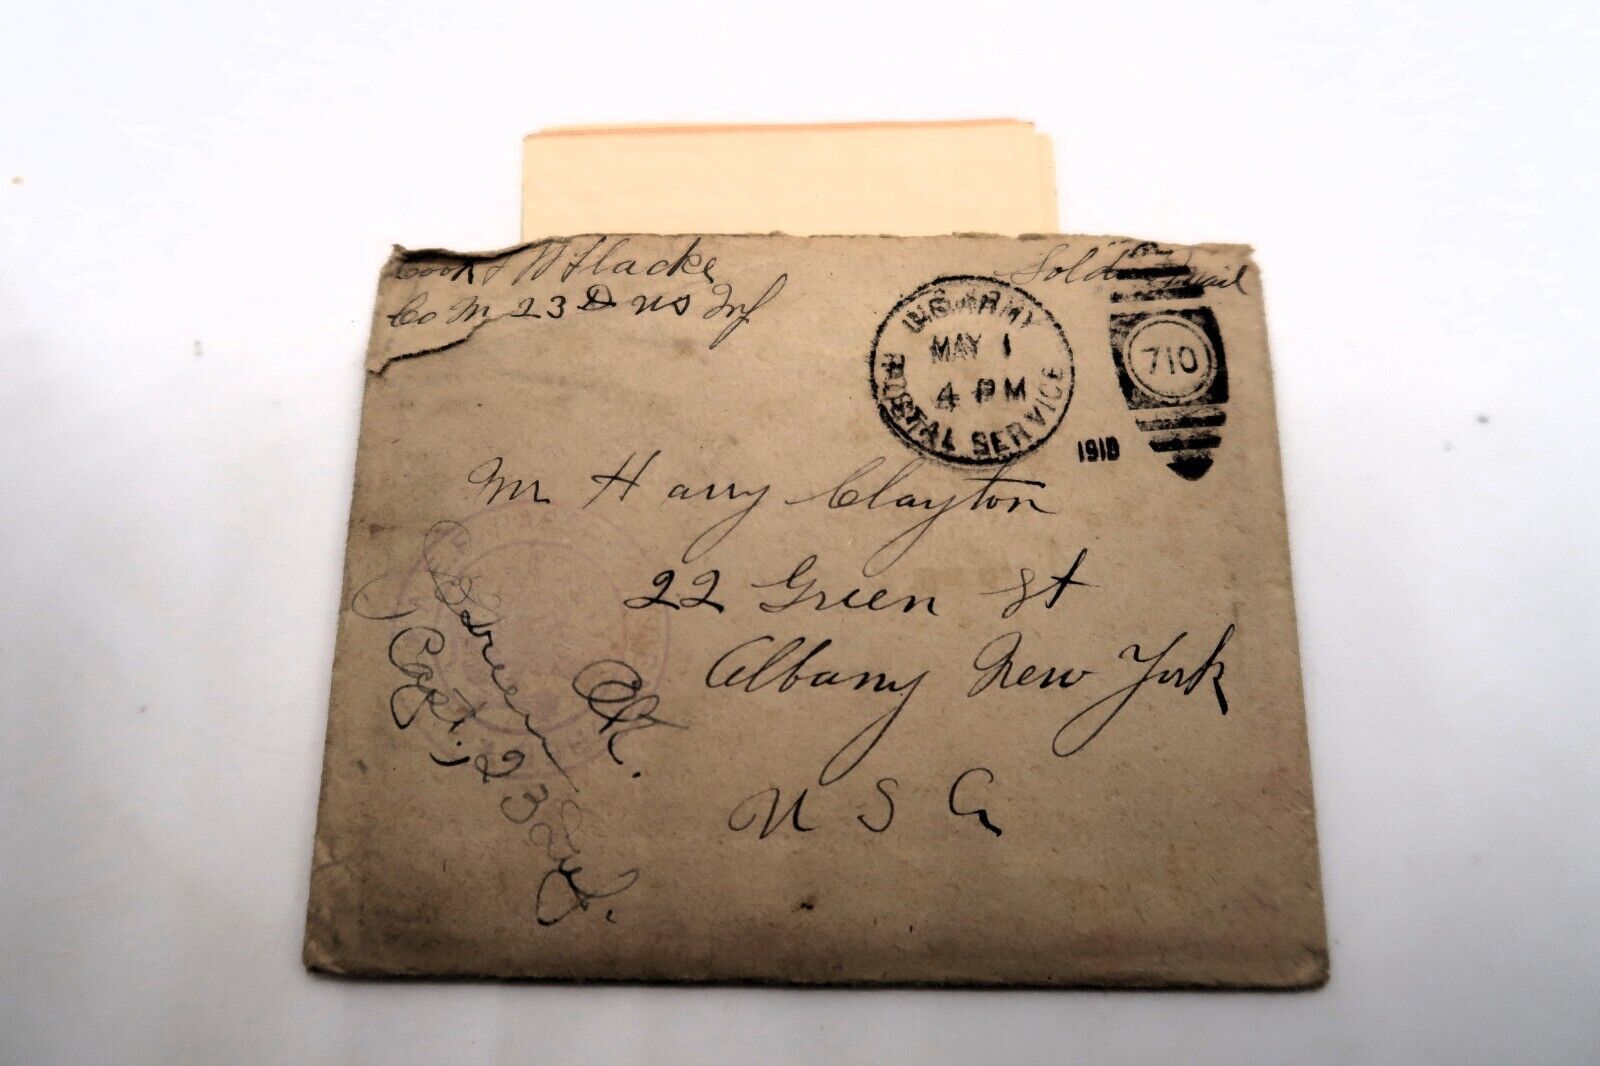 Cook Flacke
Co M 23D US Inf
Soldiers Mail
U.S. ARMY
MAY 1
4 PM
POSTAL SERVICE
710
1918
Mr Harry Clayton
22 Green St
Albany New York
U S A
OK.
Capt., 23d Inf.